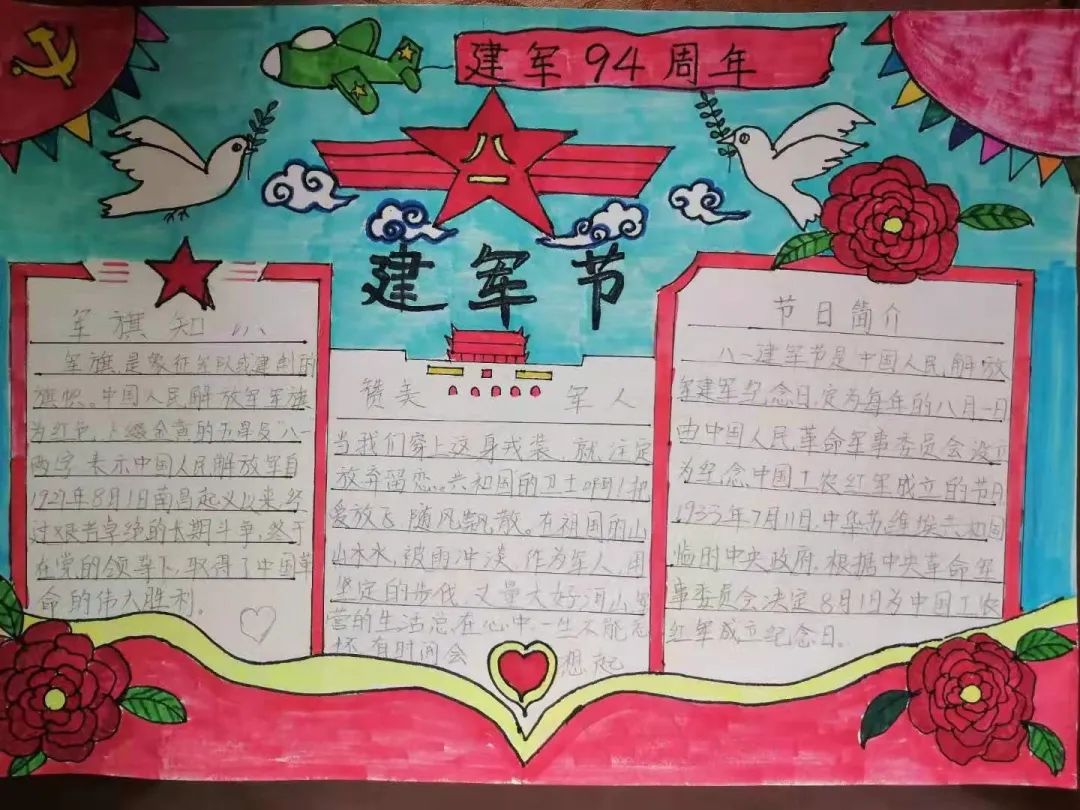 建军94周年
八一
建军节
军旗知
军旗是象征军队或建制的
旗帜。中国人民解放军军旗
为红色,上缀金黄的五角星"八一"
两字,表示中国人民解放军自
1927年8月1日南昌起义以来,经
过艰苦卓绝的长期斗争,终于
在党的领导下,取得了中国革
命的伟大胜利。
赞美 军人
当我们穿上这身戎装,就注定
放弃留恋。共和国的卫士啊!把
爱放飞,随风飘散。在祖国的山
山水水,被雨冲淡,作为军人,用
坚定的步伐,丈量大好河山军
营的生活总在心中,一生不能忘
怀有时间会 想起
节日简介
八一建军节是中国人民解放
军建军纪念日,定为每年的八月一日
由中国人民革命军事委员会设立
为纪念中国工农红军成立的节日
1933年7月11日,中华苏维埃共和国
临时中央政府,根据中央革命军
事委员会决定8月1日为中国工农
红军成立纪念日。